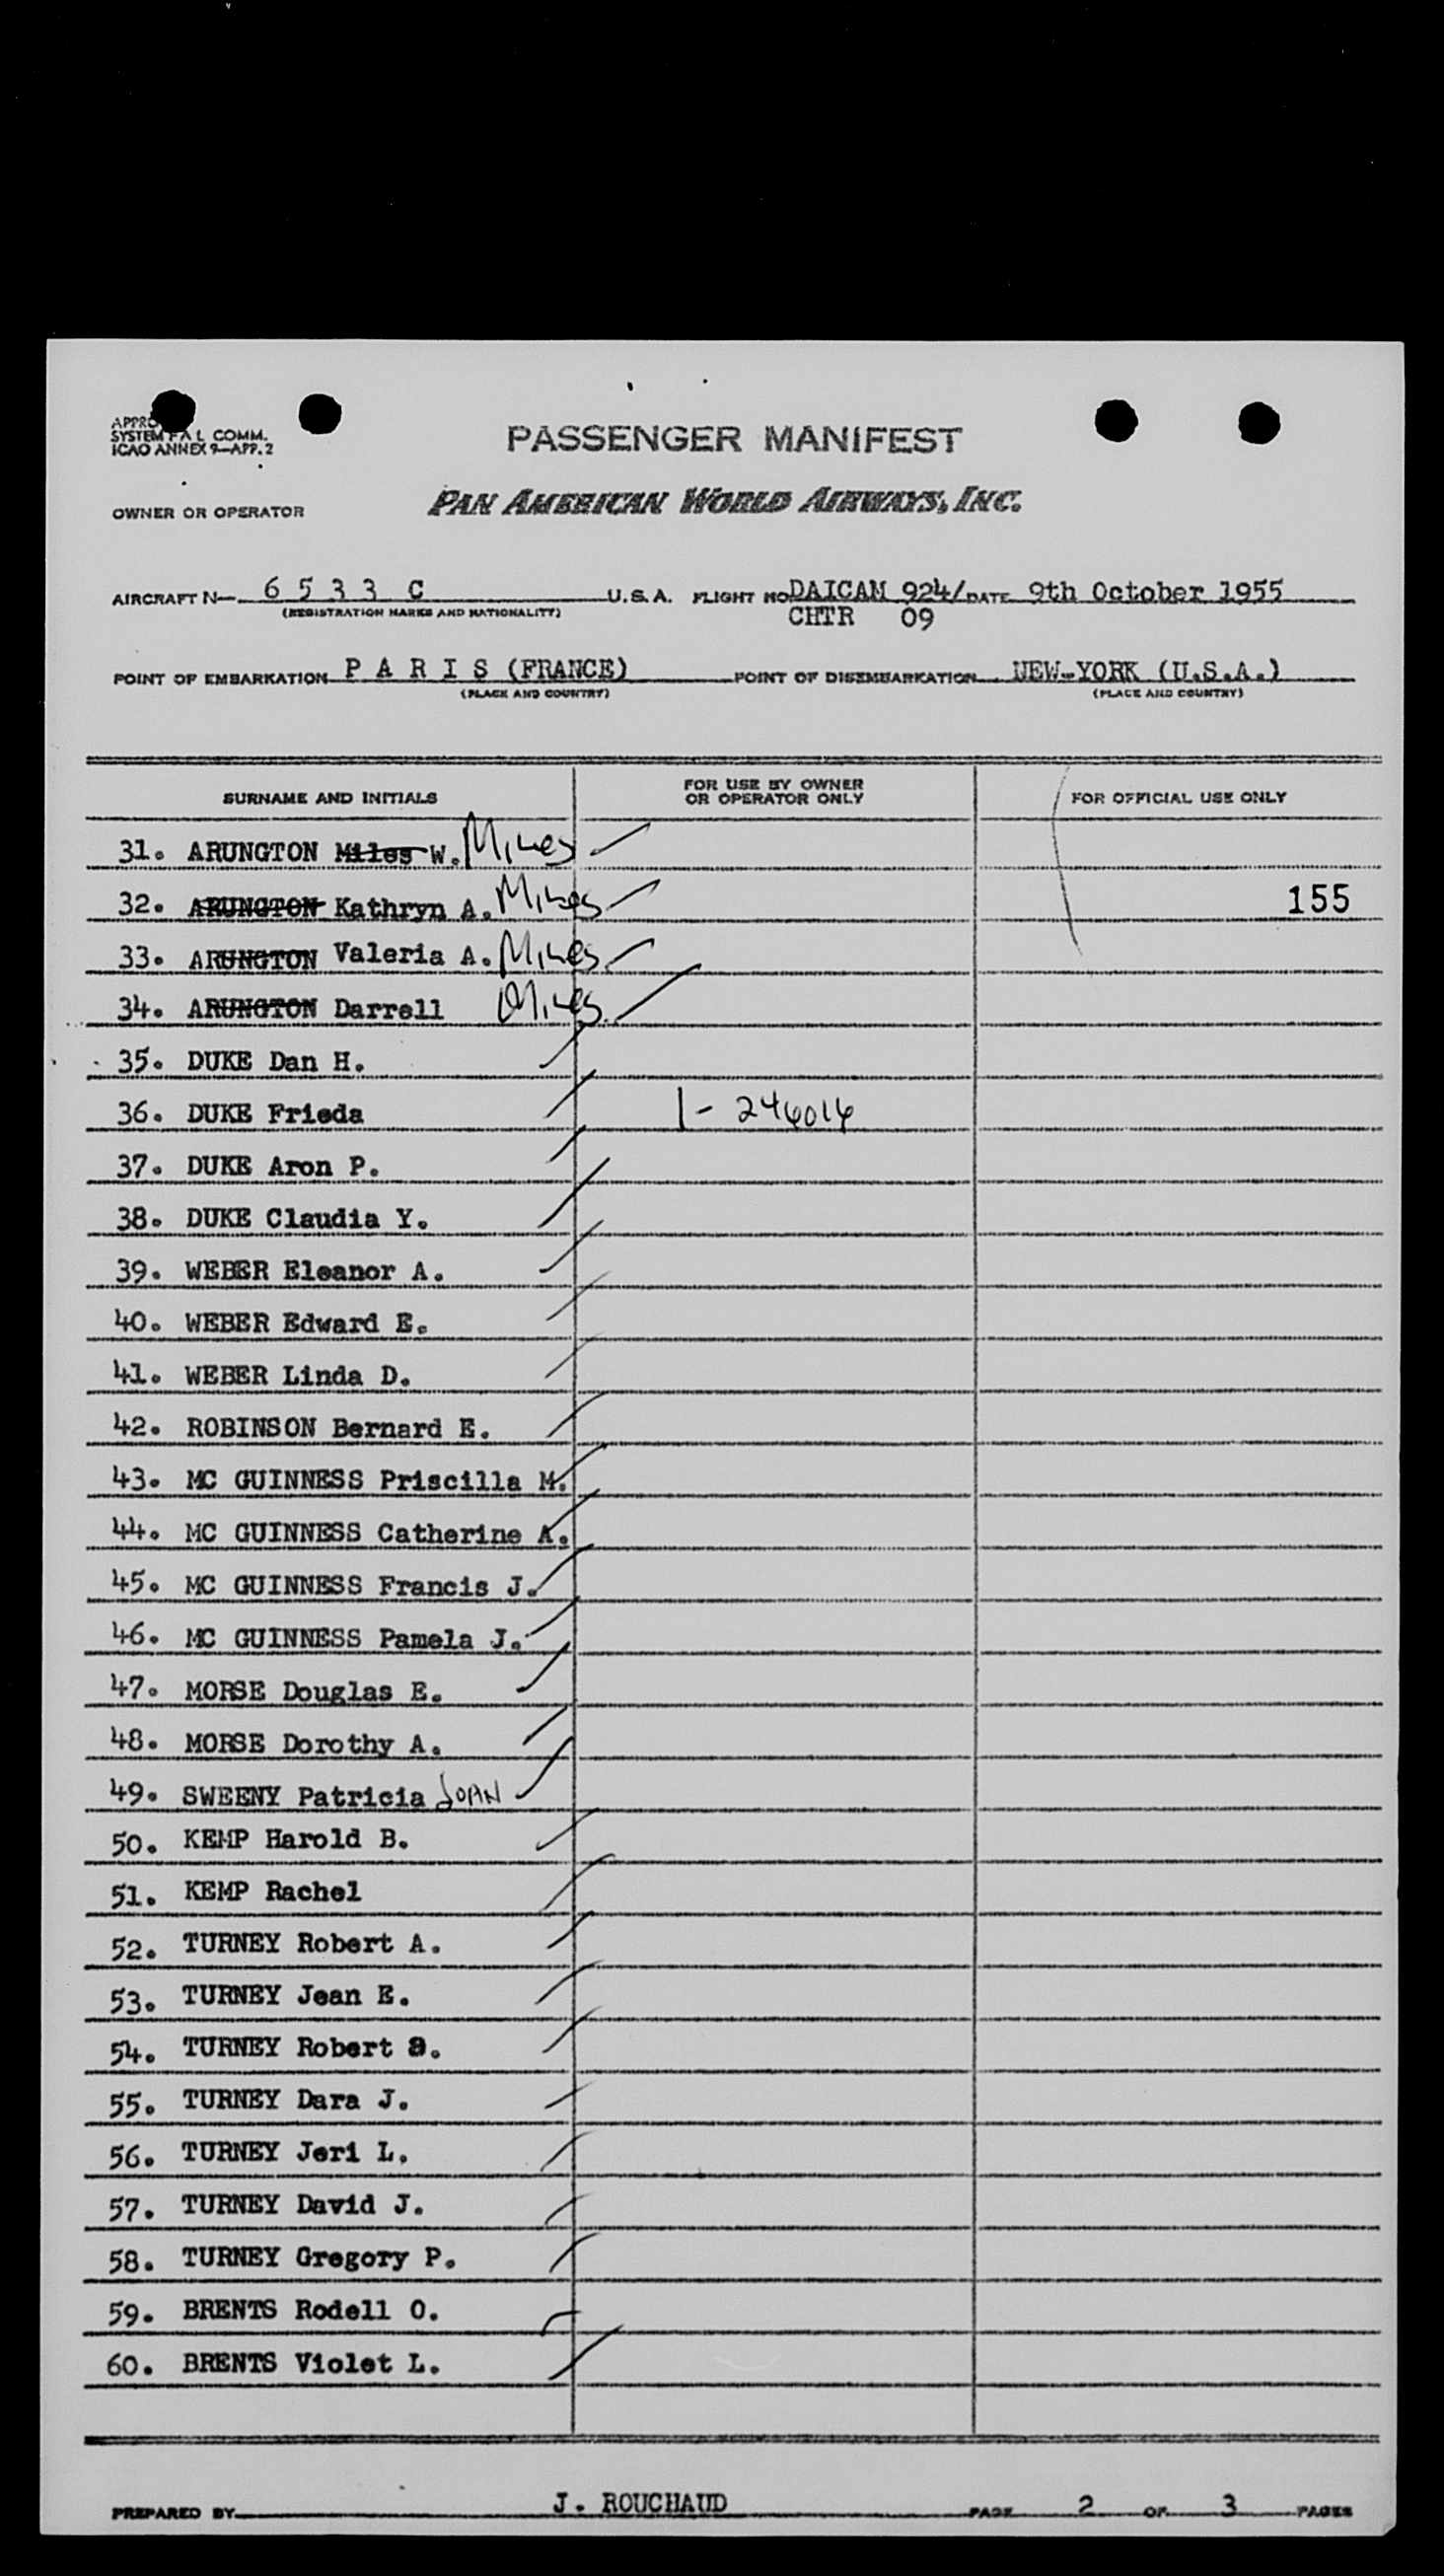 SYSTEM F A L COMM.
ICAO ANNEX 9—APP. 2
PASSENGER MANIFEST
OWNER OR OPERATOR PAN AMERICAN WORLD AIRWAYS, INC.
AIRCRAFT N— 6 5 3 3 C U.S.A. FLIGHT NO DAICAM 924/ DATE 9th October 1955
(REGISTRATION MARKS AND NATIONALITY) CHTR 09
POINT OF EMBARKATION P A R I S (FRANCE) POINT OF DISEMBARKATION NEW-YORK (U.S.A.)
(PLACE AND COUNTRY) (PLACE AND COUNTRY)
SURNAME AND INITIALS FOR USE BY OWNER OR OPERATOR ONLY FOR OFFICIAL USE ONLY
31. ARUNGTON Miles W. Miles
32. ARUNGTON Kathryn A. Miles 155
33. ARUNGTON Valeria A. Miles
34. ARUNGTON Darrell Miles
35. DUKE Dan H.
36. DUKE Frieda 1- 246014
37. DUKE Aron P.
38. DUKE Claudia Y.
39. WEBER Eleanor A.
40. WEBER Edward E.
41. WEBER Linda D.
42. ROBINSON Bernard E.
43. MC GUINNESS Priscilla M.
44. MC GUINNESS Catherine A.
45. MC GUINNESS Francis J.
46. MC GUINNESS Pamela J.
47. MORSE Douglas E.
48. MORSE Dorothy A.
49. SWEENY Patricia JOAN
50. KEMP Harold B.
51. KEMP Rachel
52. TURNEY Robert A.
53. TURNEY Jean E.
54. TURNEY Robert
55. TURNEY Dara J.
56. TURNEY Jeri L.
57. TURNEY David J.
58. TURNEY Gregory P.
59. BRENTS Rodell O.
60. BRENTS Violet L.
PREPARED BY J. ROUCHAUD PAGE 2 OF 3 PAGES